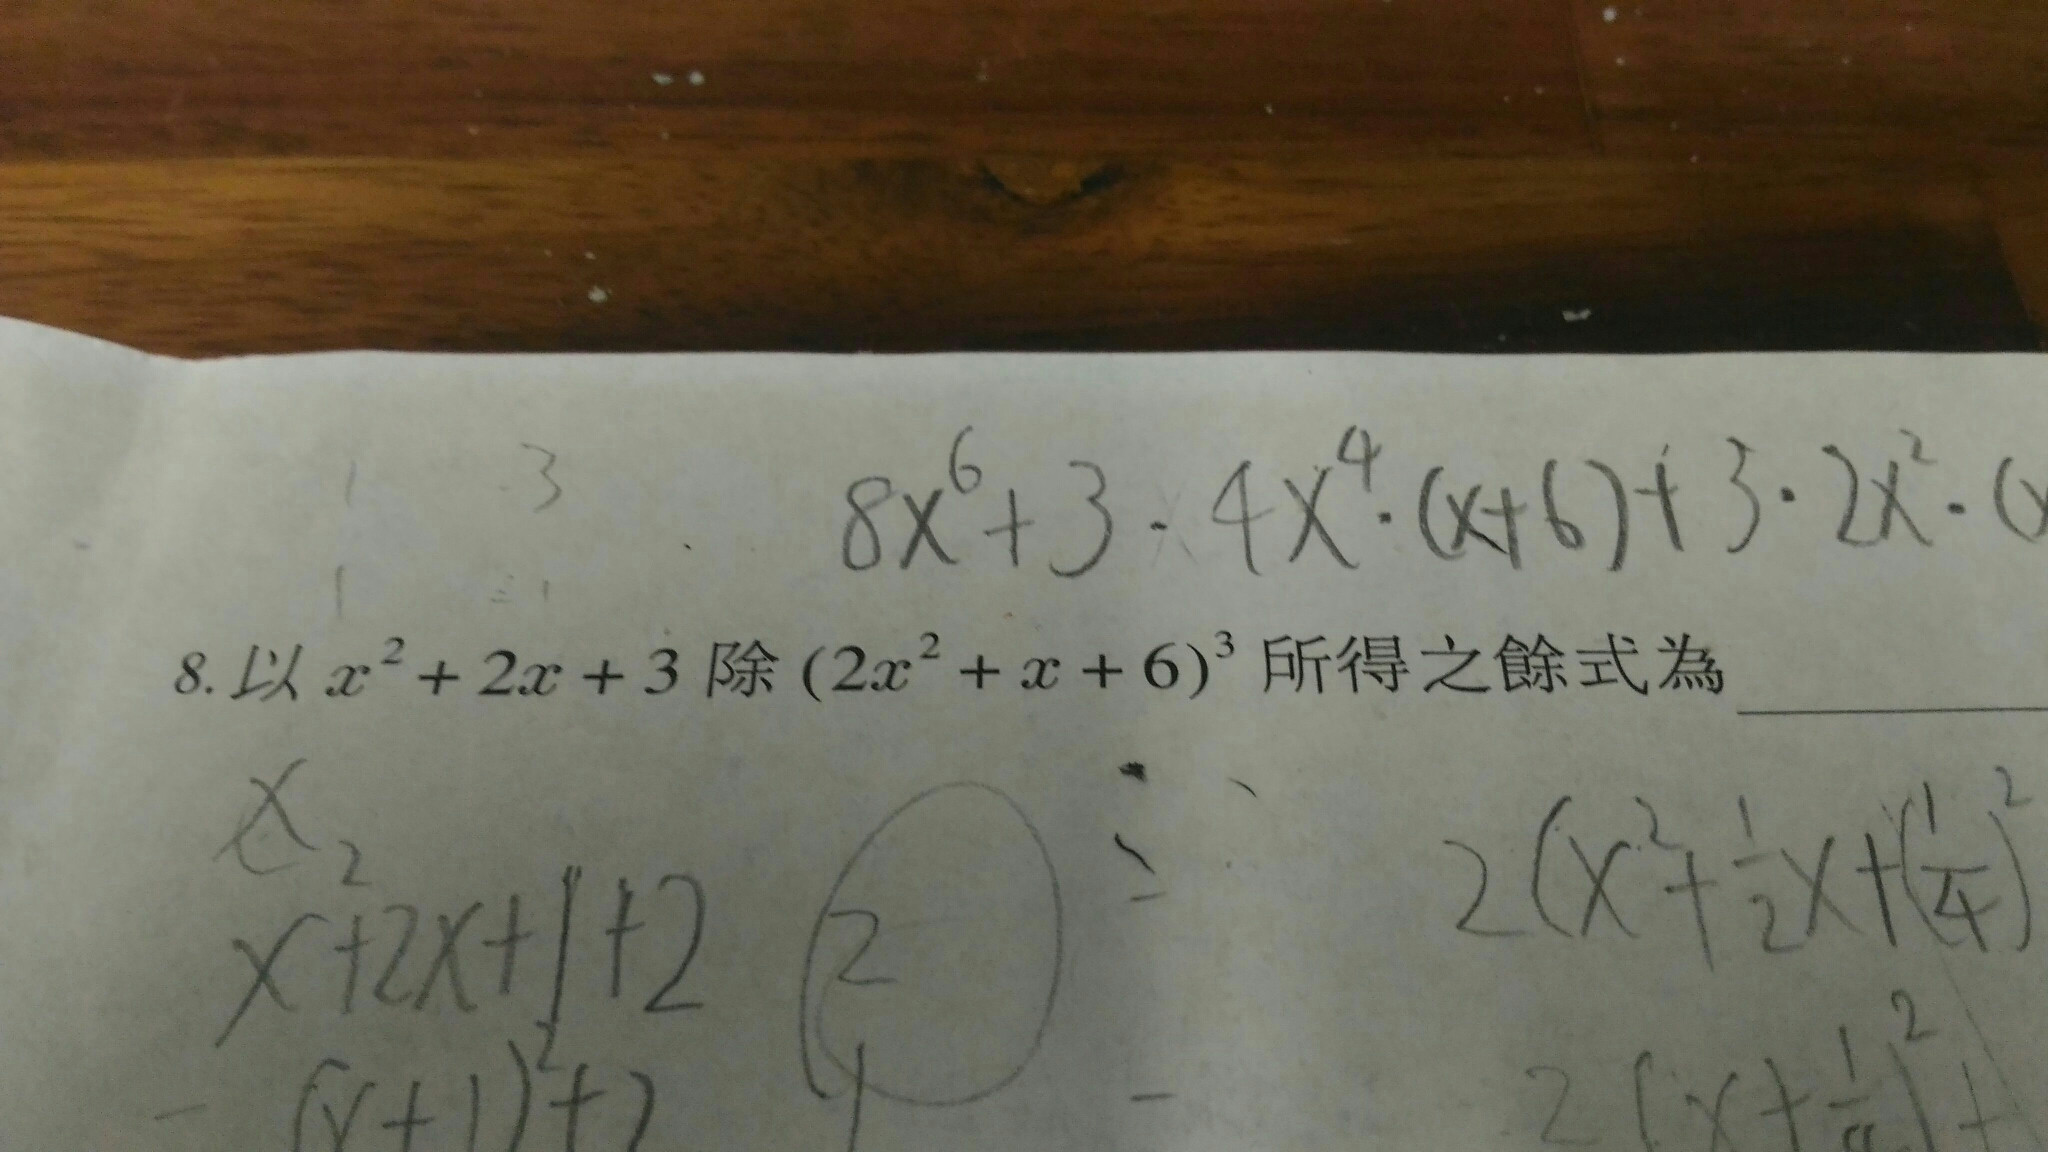 1 3
8x⁶+3·4x⁴·(x+6)+3·2x²·(x
1 -1
8. 以 x² + 2x + 3 除 (2x² + x + 6)³ 所得之餘式為
x²+2x+1+2 2 2(x²+½x+(¼)²
(x+1)²+2 1 2(x+¼)²+